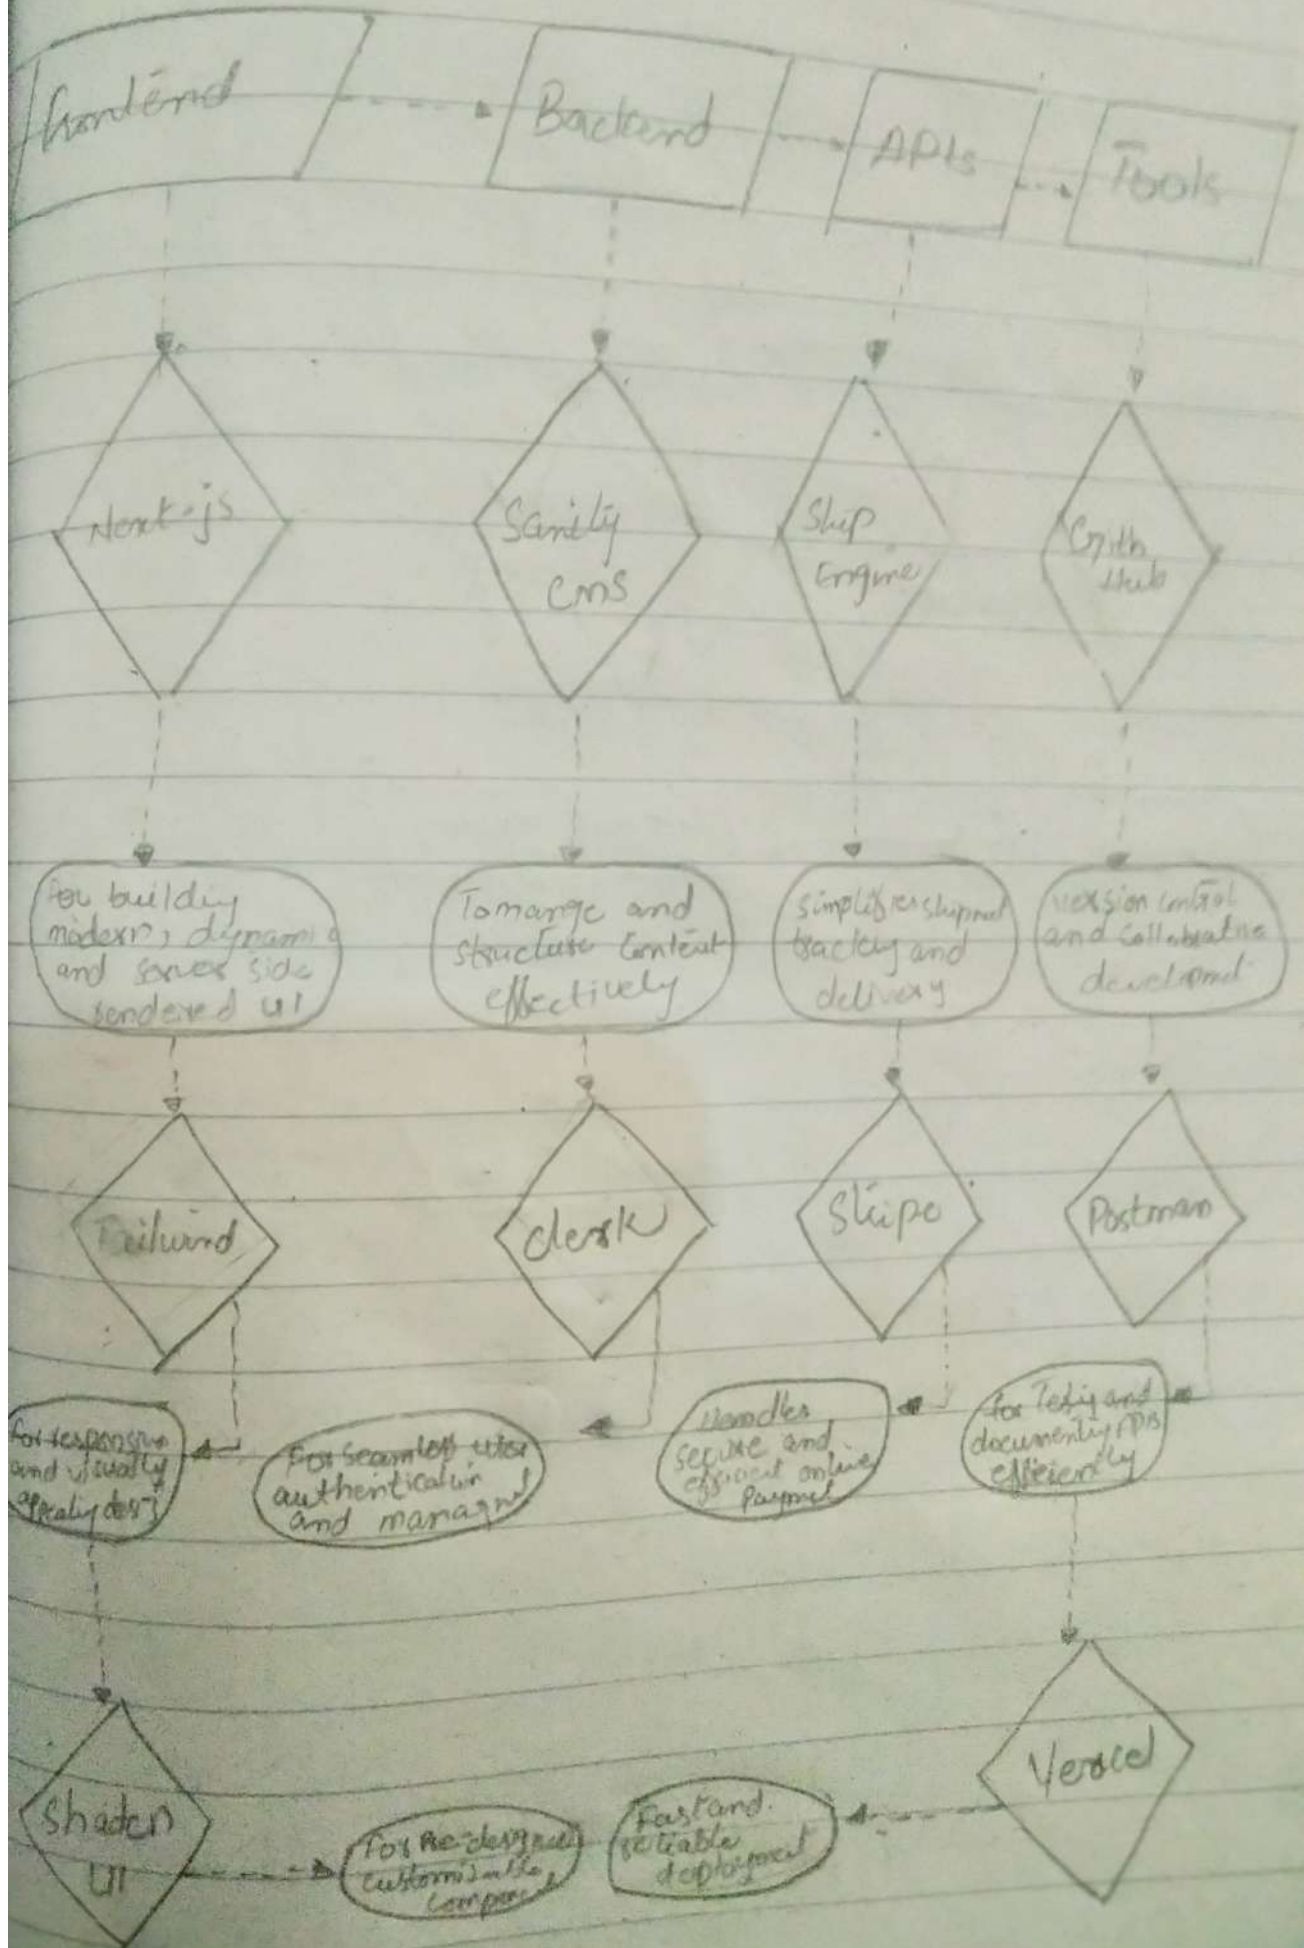 frontend
Backend
APIs
Tools
Next.js
Sanity
CMS
Ship
Engine
Gith
Hub
for building
modern, dynamic
and server side
rendered UI
To mange and
structure Content
effectively
simplifies shipmet
and
delivery
version control
and Collabrative
developmet
Tailwind
clerk
Stripe
Postman
for responsive
and visually
For seamless user
authentication
and
Handles
secure and
online
for and
APIs
Shadcn
UI
for Pre-designed
customizable
Fast and.
reliable
deployment
Vercel